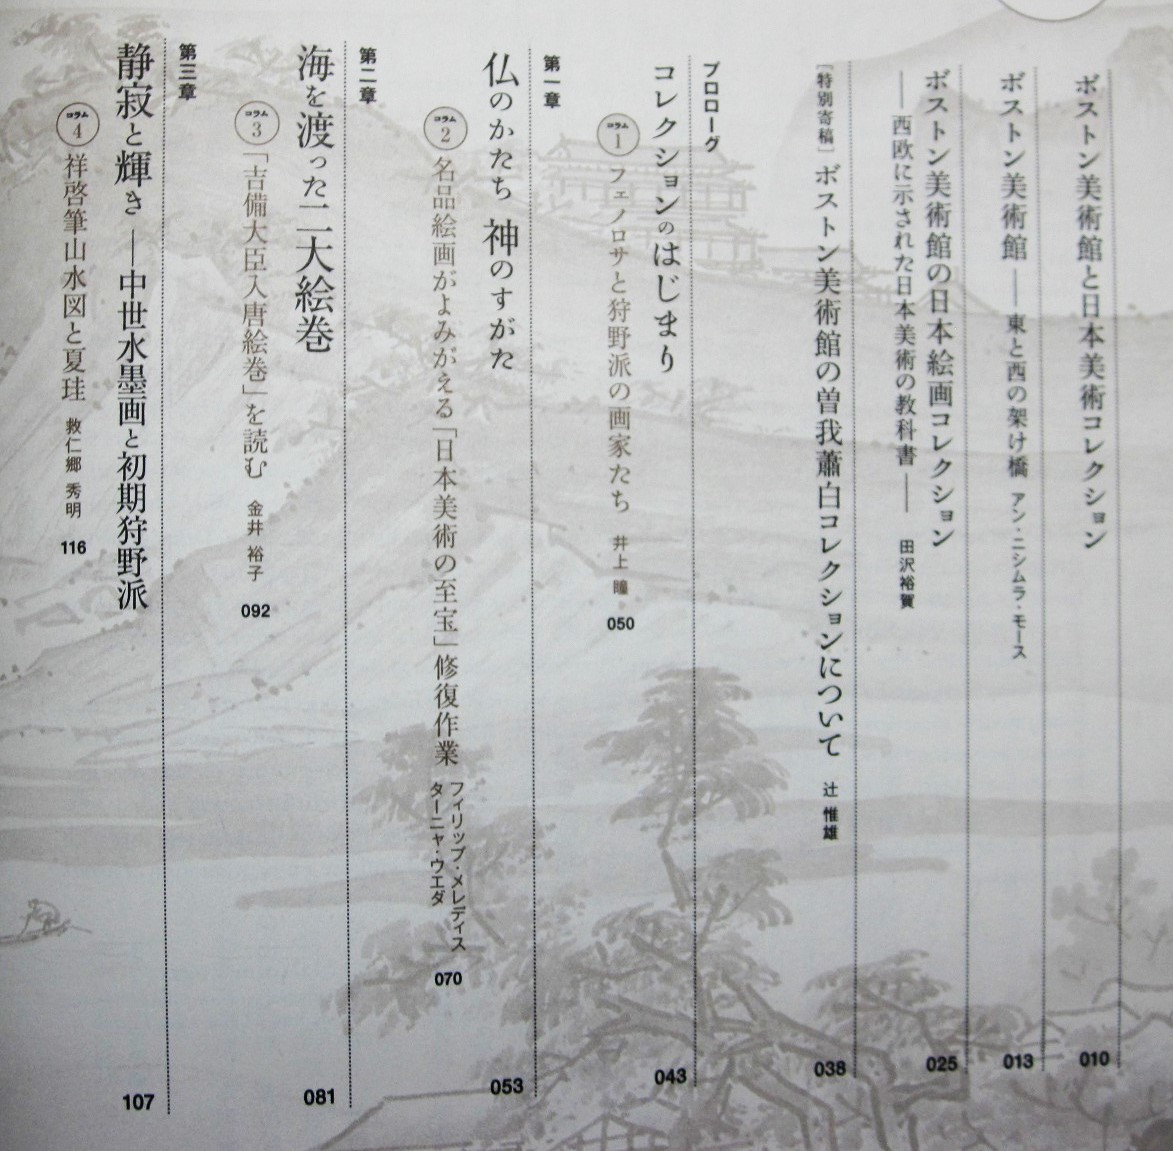 ボストン美術館と日本美術コレクション
010
ボストン美術館――東と西の架け橋 アン・ニシムラ・モース
013
ボストン美術館の日本絵画コレクション
――西欧に示された日本美術の教科書―― 田沢裕賀
025
［特別寄稿］ボストン美術館の曽我蕭白コレクションについて 辻 惟雄
038
プロローグ
コレクションのはじまり
043
コラム1 フェノロサと狩野派の画家たち 井上 瞳 050
第一章
仏のかたち 神のすがた
053
コラム2 名品絵画がよみがえる「日本美術の至宝」修復作業 フィリップ・メレディス
ターニャ・ウエダ
070
第二章
海を渡った二大絵巻
081
コラム3 「吉備大臣入唐絵巻」を読む 金井 裕子 092
第三章
静寂と輝き――中世水墨画と初期狩野派
107
コラム4 祥啓筆山水図と夏珪 救仁郷 秀明 116